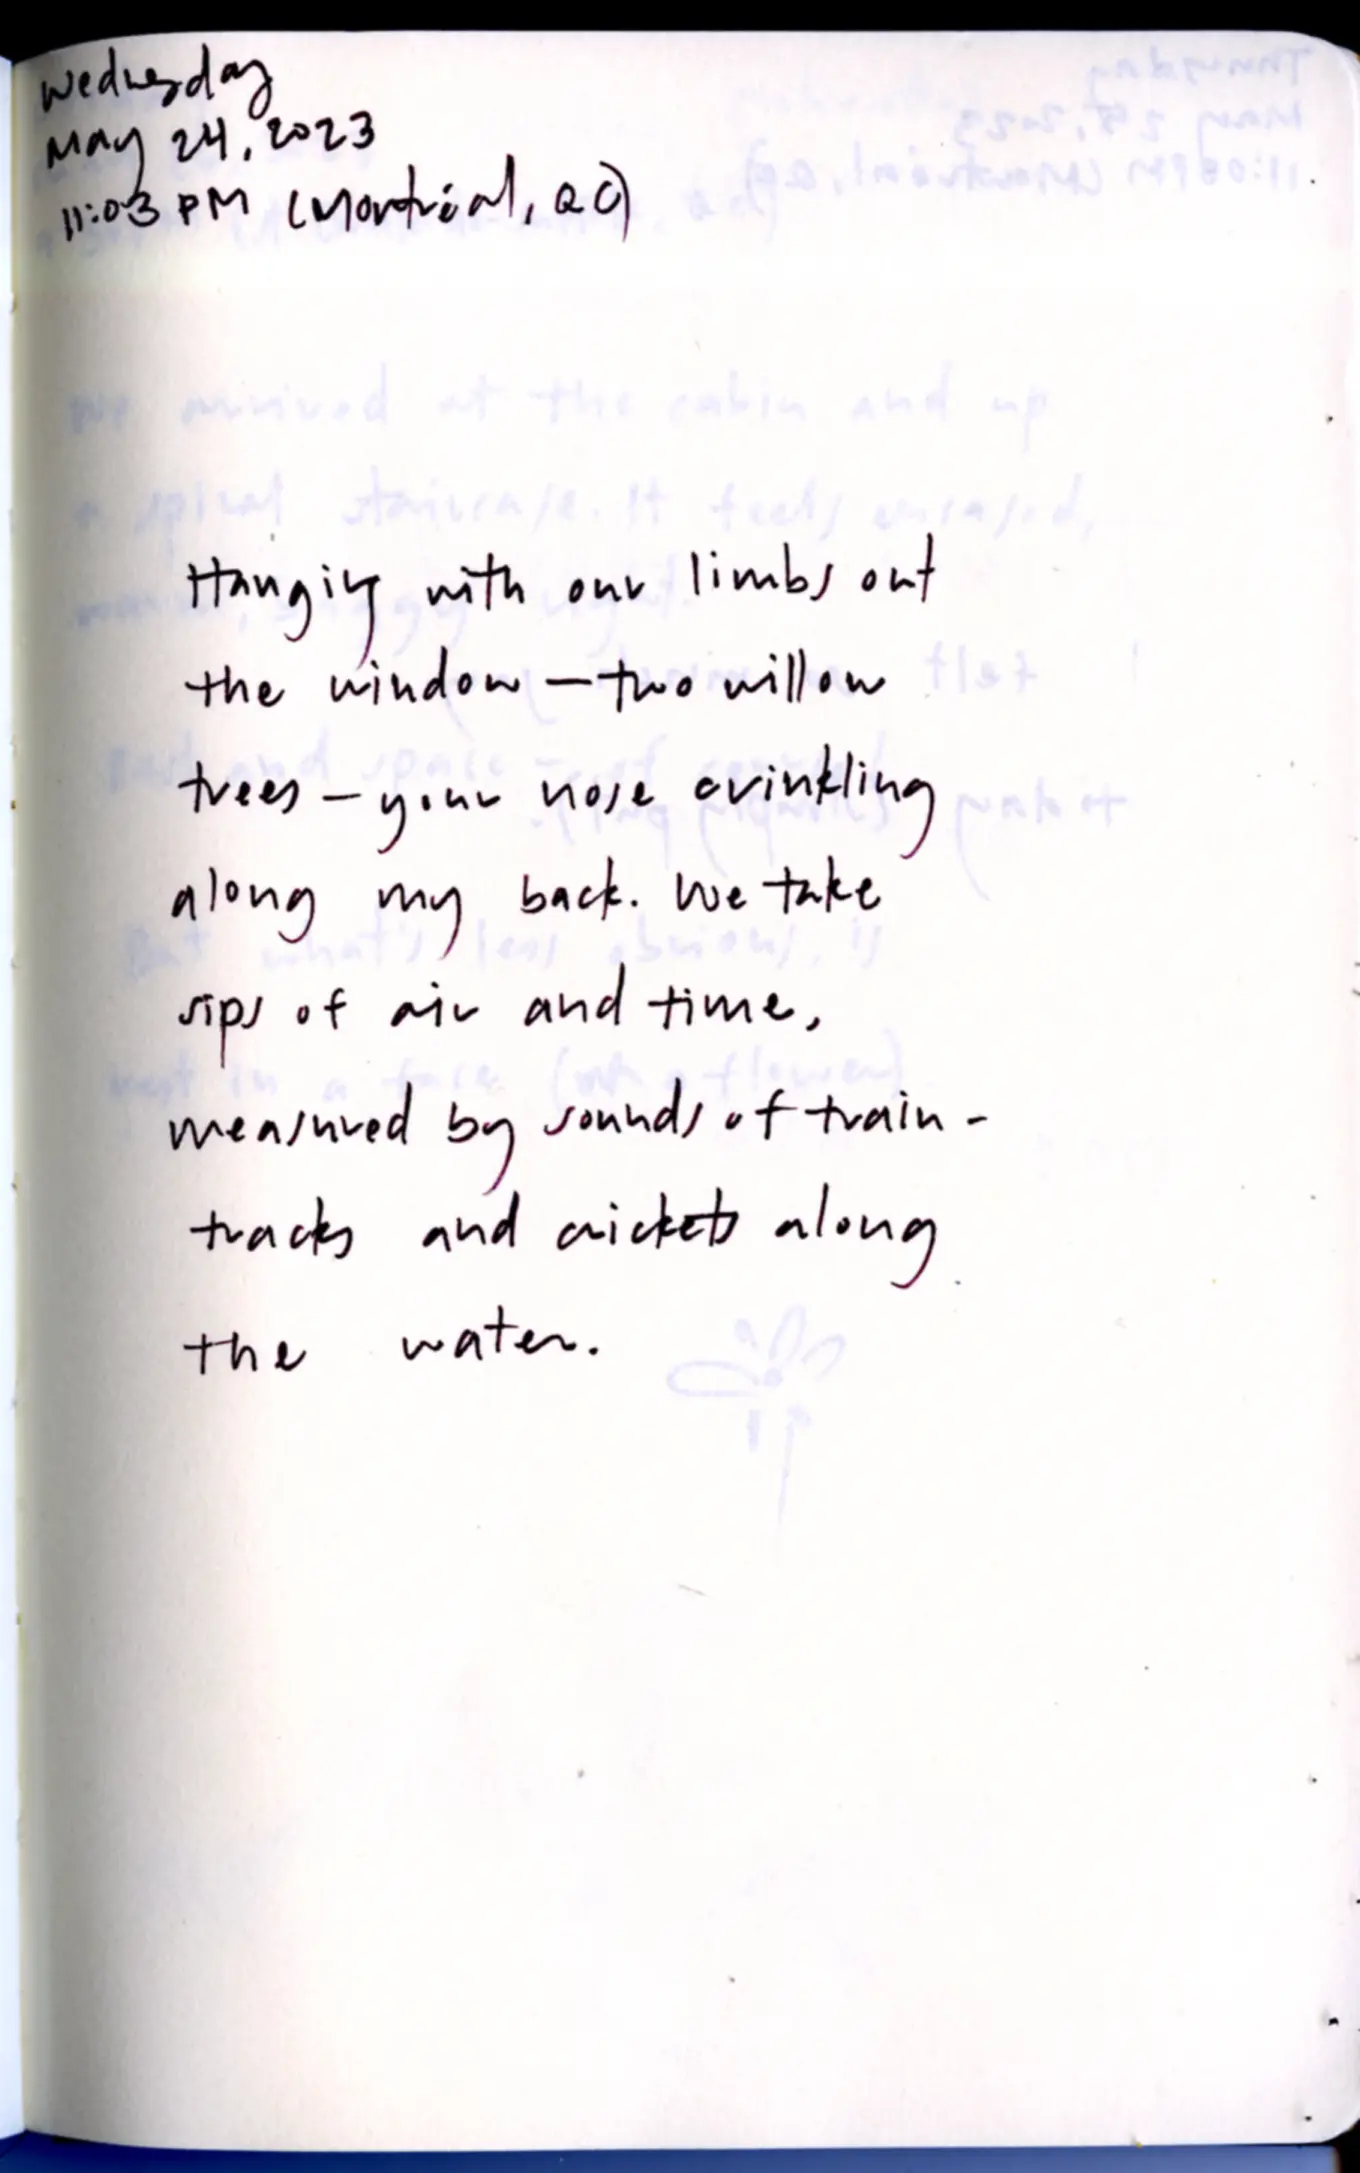 Wednesday
May 24, 2023
11:03 PM (Montréal, QC)
Hanging with our limbs out
the window — two willow
trees — your nose crinkling
along my back. We take
sips of air and time,
measured by sounds of train-
tracks and crickets along
the water.